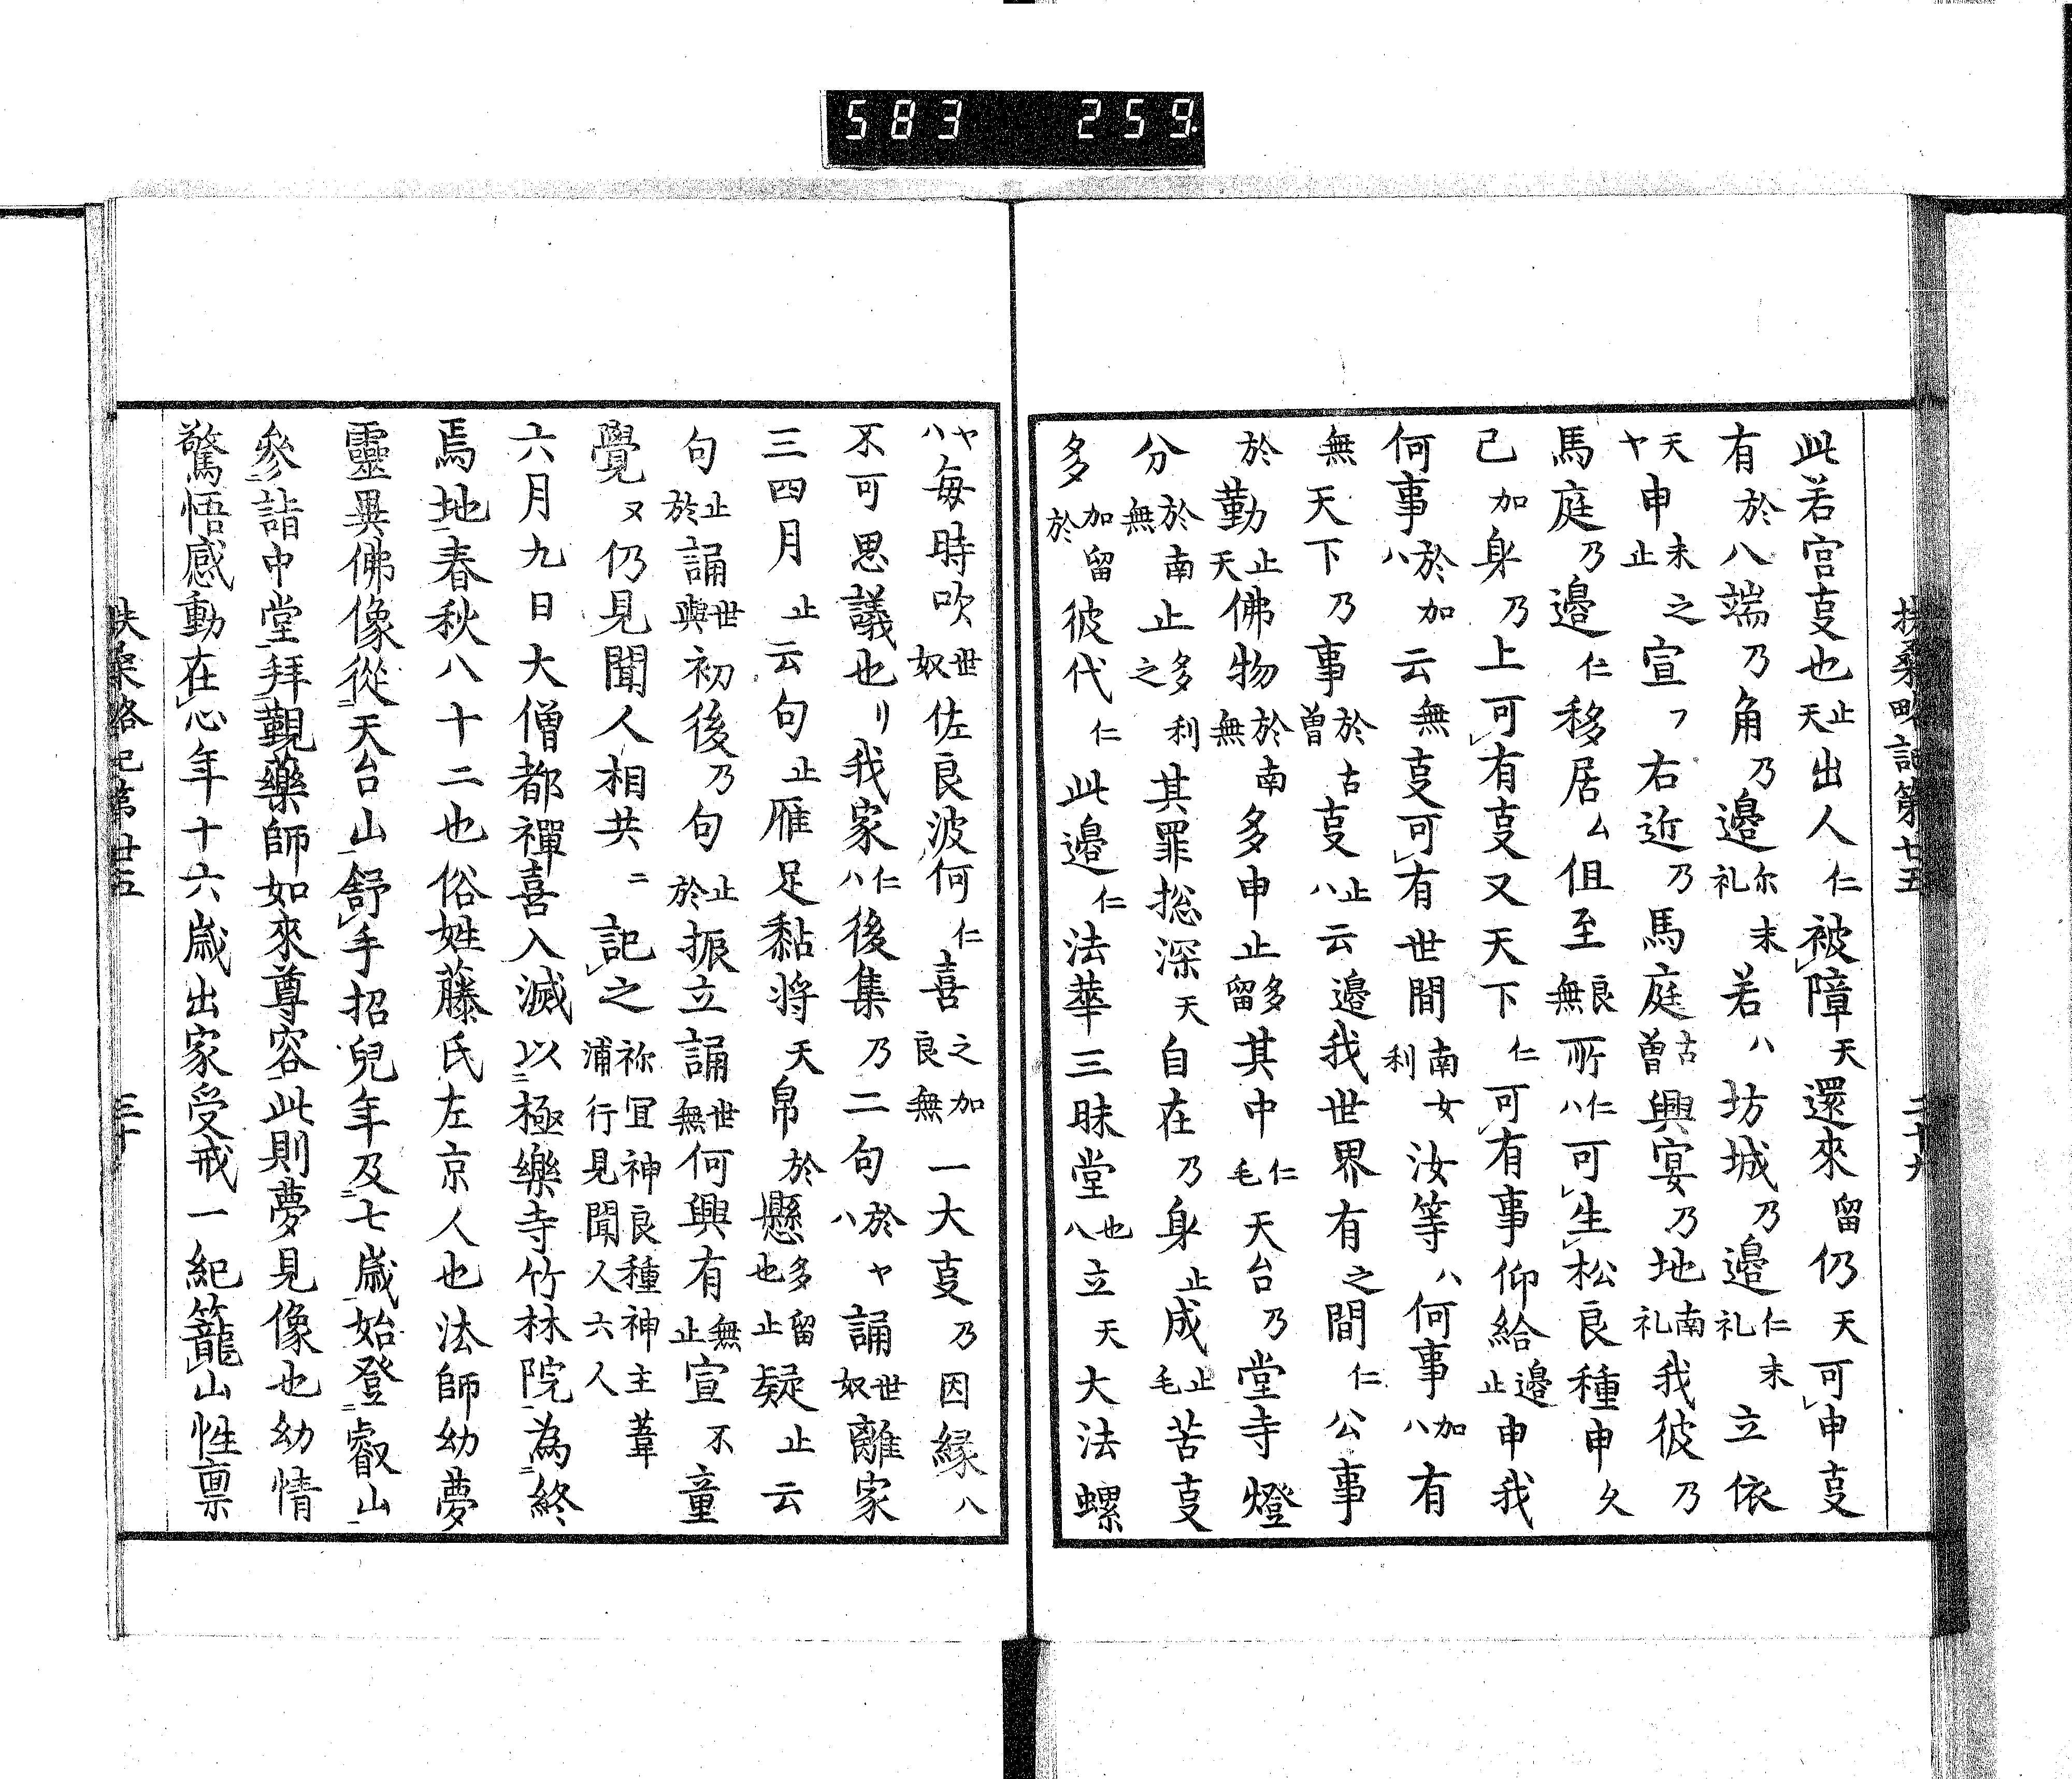 583 259
扶桑略記第廿五 二十九
此若宮㕝也止天出人仁被障天還來留仍天可申㕝
有於八端乃角乃邉尓礼末若八坊城乃邉仁礼末立依
天ヤ申末止之宣フ右近乃馬庭古曽興宴乃地南礼我彼乃
馬庭乃邉仁移居ム但至良無所仁八可生松良種申久
己加身乃上可有㕝又天下仁可有事仰給邉止申我
何事於八加云無㕝可有世間南利女汝等八何事加八有
無天下乃事於曽古㕝止八云邉我世界有之間仁公事
於勤止天佛物於無南多申止多留其中仁毛天台乃堂寺燈
分於無南止多之利其罪捴深天自在乃身止成止毛苦㕝
多加於留彼代仁此邉仁法華三昧堂也八立天大法螺
ヤ八毎時吹世奴佐良波何仁喜之良加無一大㕝乃因縁八
不可思議也リ我家仁八後集乃二句於八ヤ誦世奴離家
三四月止云句止雁足黏将天帛於懸多也留止疑止云
句止於誦世與初後乃句止於振立誦世無何興有無止宣不童
覺又仍見聞人相共二記之祢冝神良種神主葦浦行見聞人六人
六月九日大僧都禪喜入滅以極樂寺竹林院為終
焉地春秋八十二也俗姓藤氏左京人也法師幼夢
靈異佛像從天台山舒手招兒年及七歳始登叡山
參詣中堂拜覲藥師如來尊容此則夢見像也幼情
驚悟感動在心年十六歳出家受戒一紀籠山性禀
扶桑略記第廿五 三十